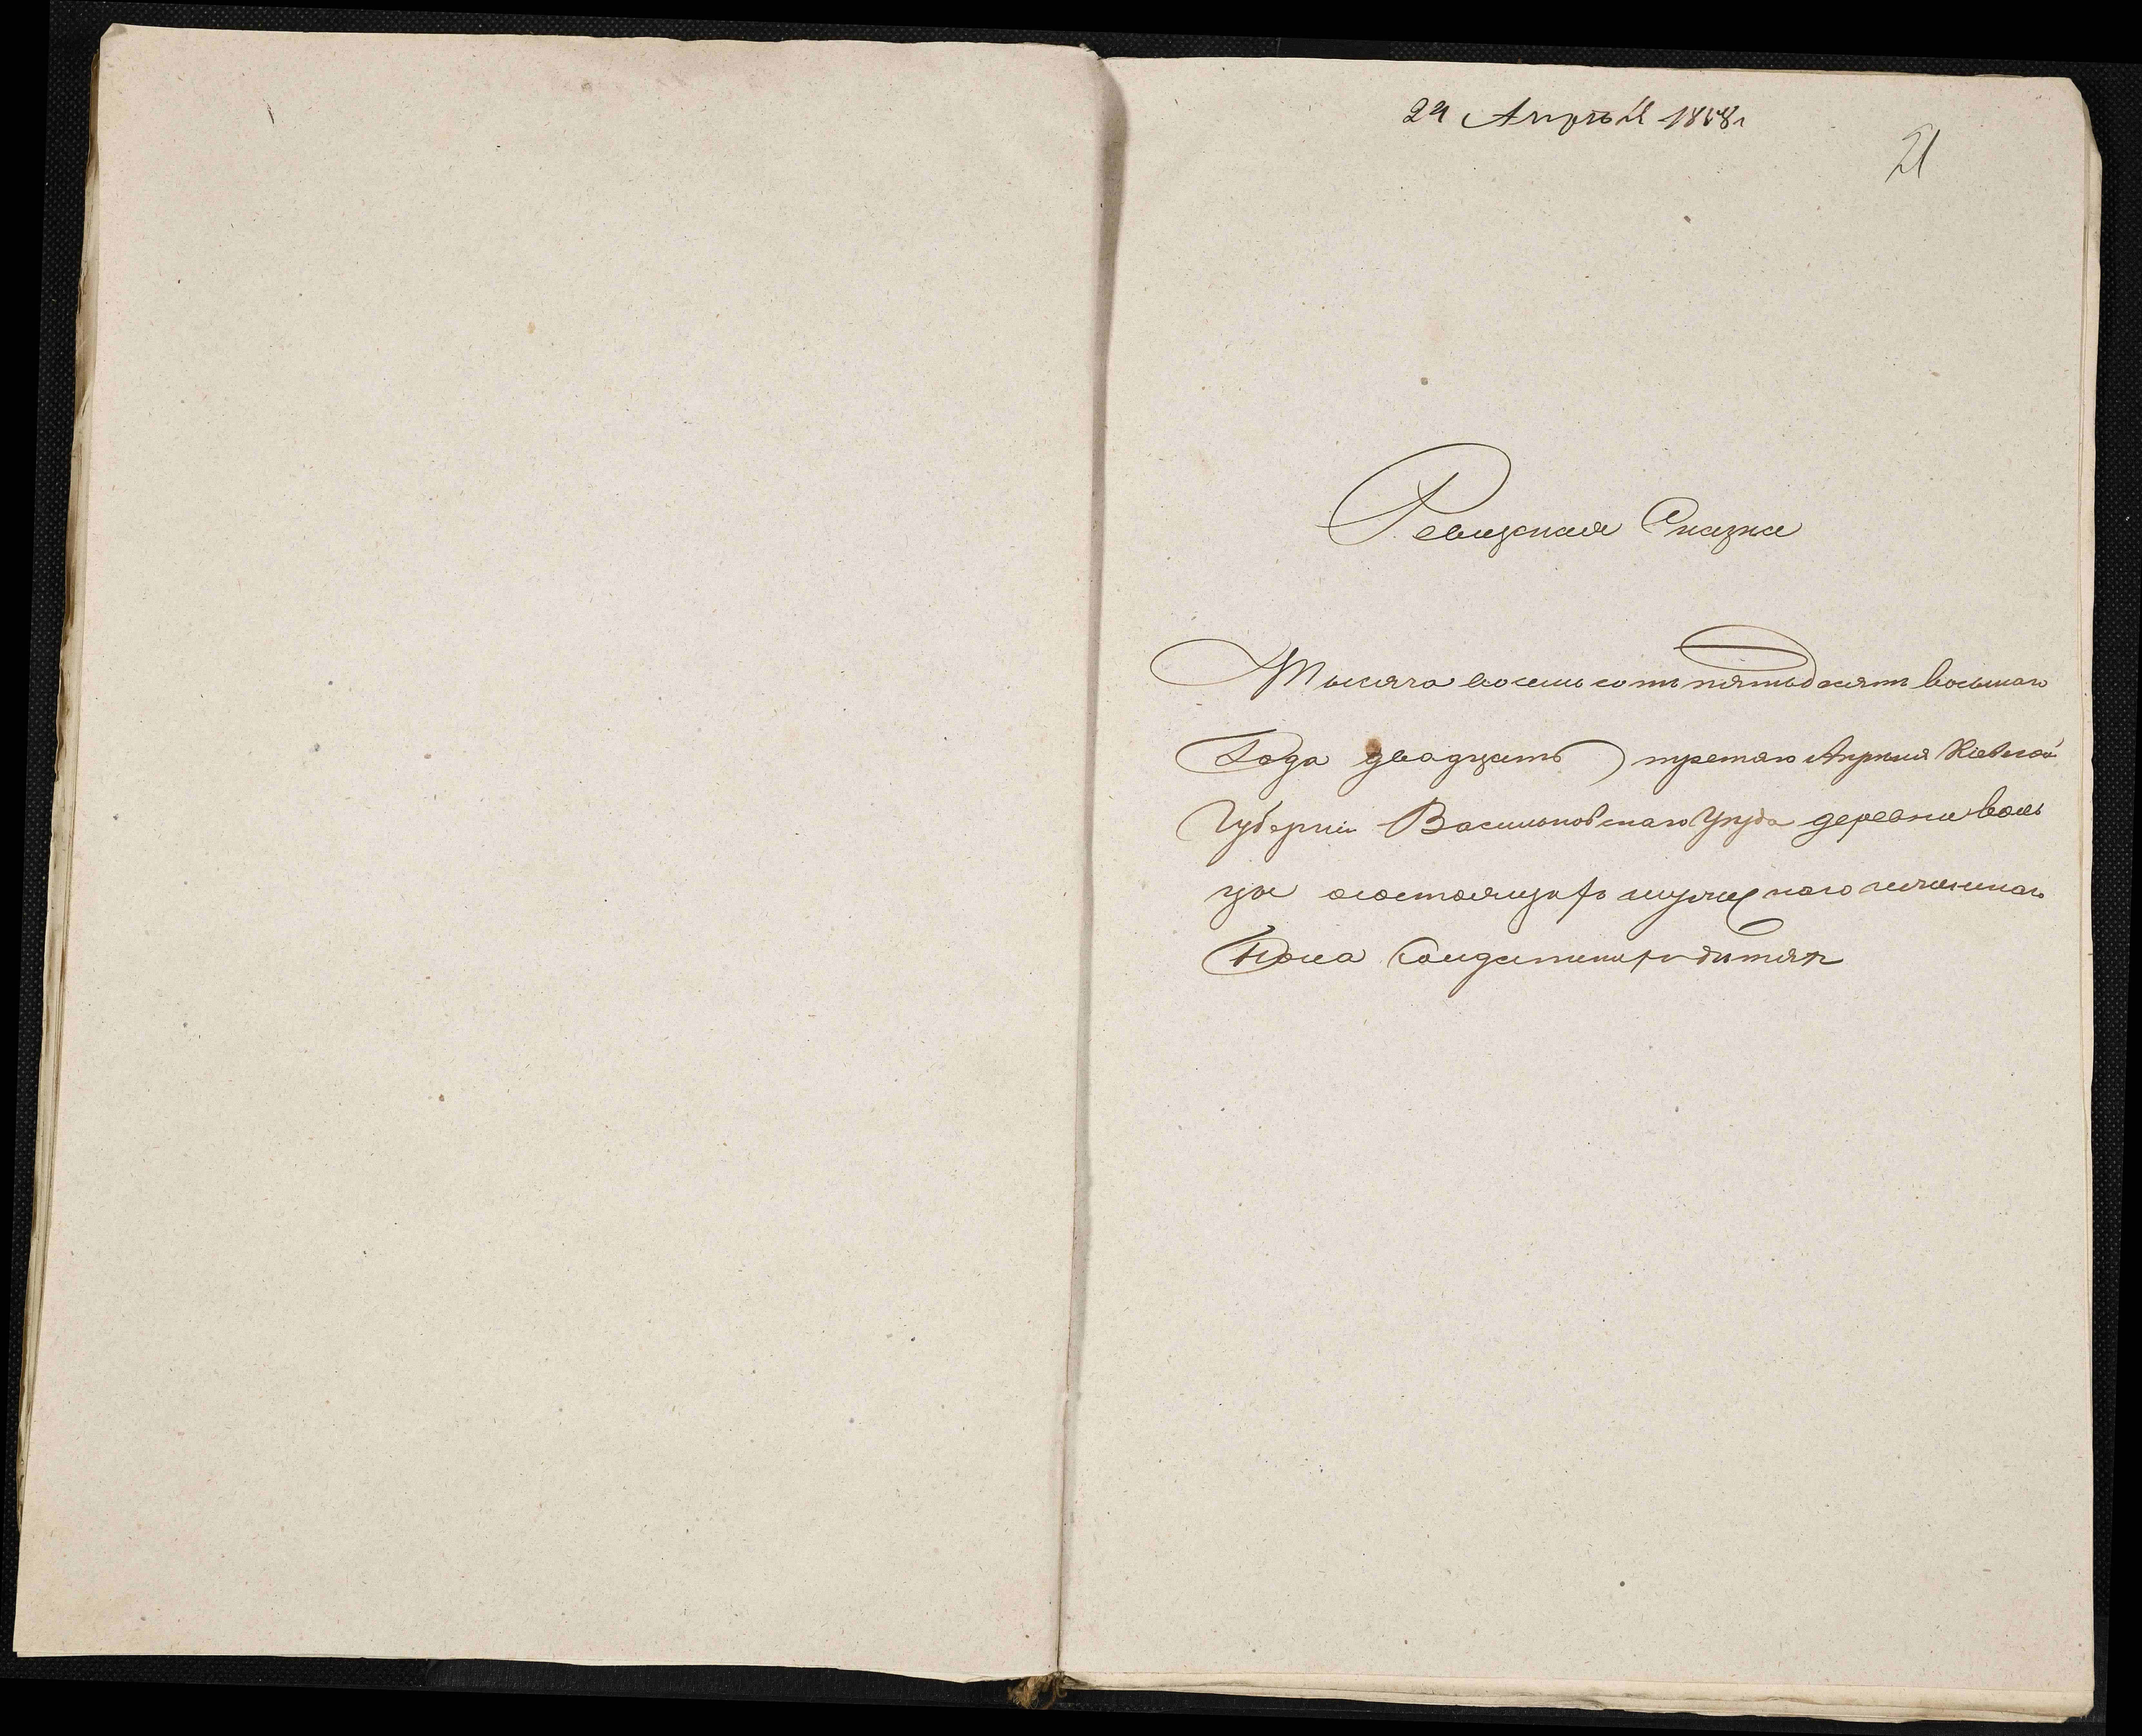 24 Апрѣля 1858 г
21
Ревизская Сказка
Тысяча восемь сотъ пятьдесятъ восьмаго
Года двадцать третяго Апрѣля Кіевской
Губерніи Васильковскаго Уѣзда деревни воль
цы состоящихъ мужескаго
Пола Солдатскихъ